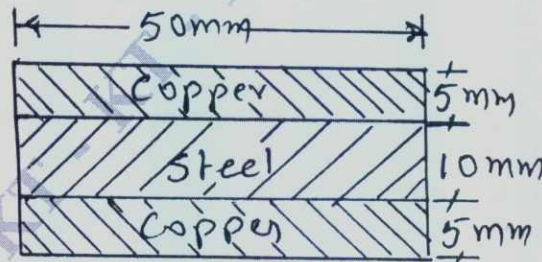 50mm
Copper
5mm
Steel
10mm
Copper
5mm
KT - KT -